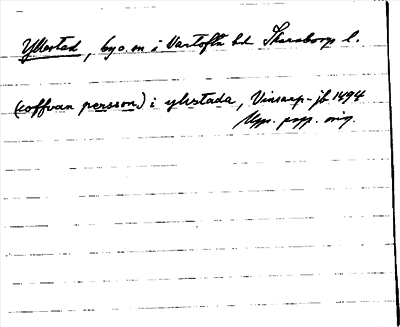 Yllestad, by o. sn i Vartofta hd Skaraborg l.
(coffvan persson) i ylistada, Vinsarp-jb 1494
Upps. papp. orig.